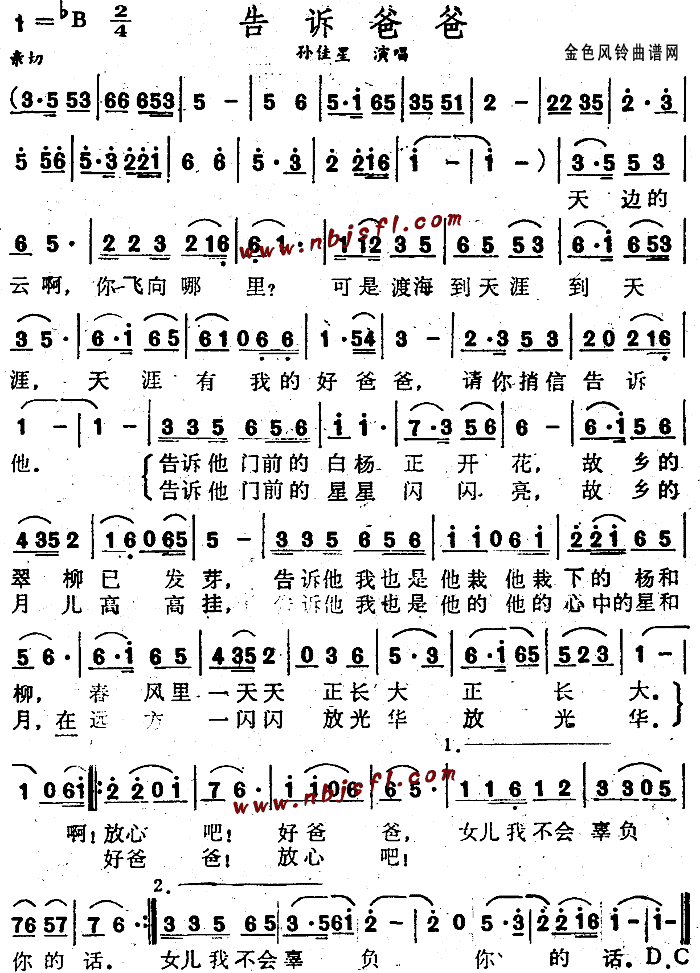 1=♭B 2/4 告诉爸爸
亲切 孙佳星 演唱 金色风铃曲谱网
(3·5 53 | 66 653 | 5 - | 5 6 | 5·i 65 | 35 51 | 2 - | 22 35 | 2·3 |
5 56 | 5·3 221 | 6 6 | 5·3 | 2 216 | i - | i - ) | 3·5 5 3 |
天 边的
6 5· | 2 2 3 2 16 | 6 1· | 1 12 3 5 | 65 53 | 6·i 653 |
www.nbjsfl.com
云啊, 你飞向哪 里? 可是渡海到天涯到天
3 5· | 6·i 65 | 61066 | 1·54 | 3 - | 2·3 53 | 20 216 |
涯, 天涯有我的好爸爸, 请你捎信告诉
1 - | 1 - | 335 656 | i i· | 7·3 56 | 6 - | 6·i 56 |
他. 告诉他门前的白杨正开花, 故乡的
告诉他门前的星星闪闪亮, 故乡的
4352 | 16065 | 5 - | 335 656 | i i06i | 2 2i 65 |
翠柳已发芽, 告诉他我也是他栽他栽下的杨和
月儿高高挂, 诉他我也是他的他的心中的星和
5 6· | 6·i 65 | 4352 | 036 | 5·3 | 6·i65 | 352 | 1 - |
柳, 春风里一天天正长大正长大.
月, 在远方一闪闪放光华放光华.
1.
1 06i |: 2 20i | 76· | i i06 | 65· | 11612 | 3305 |
www.nbjsfl.com
啊! 放心吧! 好爸爸, 女儿我不会辜负
好爸爸! 放心吧!
2.
76 57 | 76· :| 335 65 | 3·56i | 2 - | 20 | 5·3 | 2 2i6 | i - | i- |
你的话. 女儿我不会辜负你的话. D.C